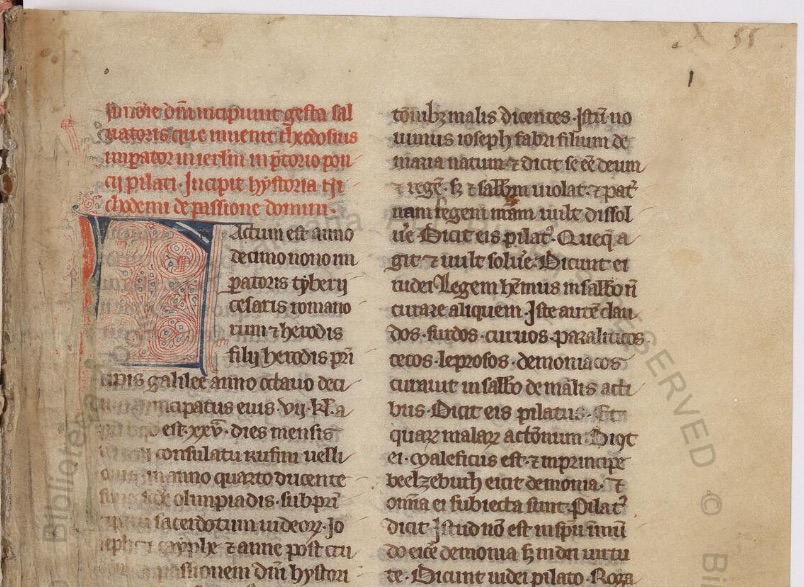 In noie dni incipiunt gesta sal
uatoris que inuenit theodosius
imperator in ierlm in pretorio pon
cij pilati. Incipit hystoria ni
chodemi de passione domini.
Actum est anno
decimo nono im
patoris tyberij
cesaris romano
rum ⁊ herodis
filij herodis pri
cipis galilee anno octauo deci
principatus eius. vij. kl. a
est. xxv. dies mensis
consulatu rufini uelli
in anno quarto ducente
olimpiadis. sub pri
sacerdotum iudeor. Jo
cayphe ⁊ anne post cru
passionem dni hystori
55
tionibz malis dicentes. Istu no
uimus ioseph fabri filium de
maria natum ⁊ dicit se ee deum
⁊ rege. sz ⁊ sabbm uiolat. ⁊ pat
nam legem nram uult dissol
u'e. Dicit eis pilat. Que q a
git ⁊ uult solu'e. Dicunt ei
iudei Legem hemus in sabbo n
curare aliquem. Iste aute clau
dos. surdos. curuos. paraliticos.
cecos. leprosos. demoniacos
curauit in sabbo de malis acti
bus. Dicit eis pilatus.
quare malar actionum. Dicut
ei. Maleficus est. ⁊ in principe
beelzebuth eicit demonia. ⁊
omia ei subiecta sunt. Pilat
dicit Istud no est in spu inmu
do eice demonia sz in dei uirtu
te. Dicunt iudei pilato. Roga
RESERVED © Bi
Bibliote